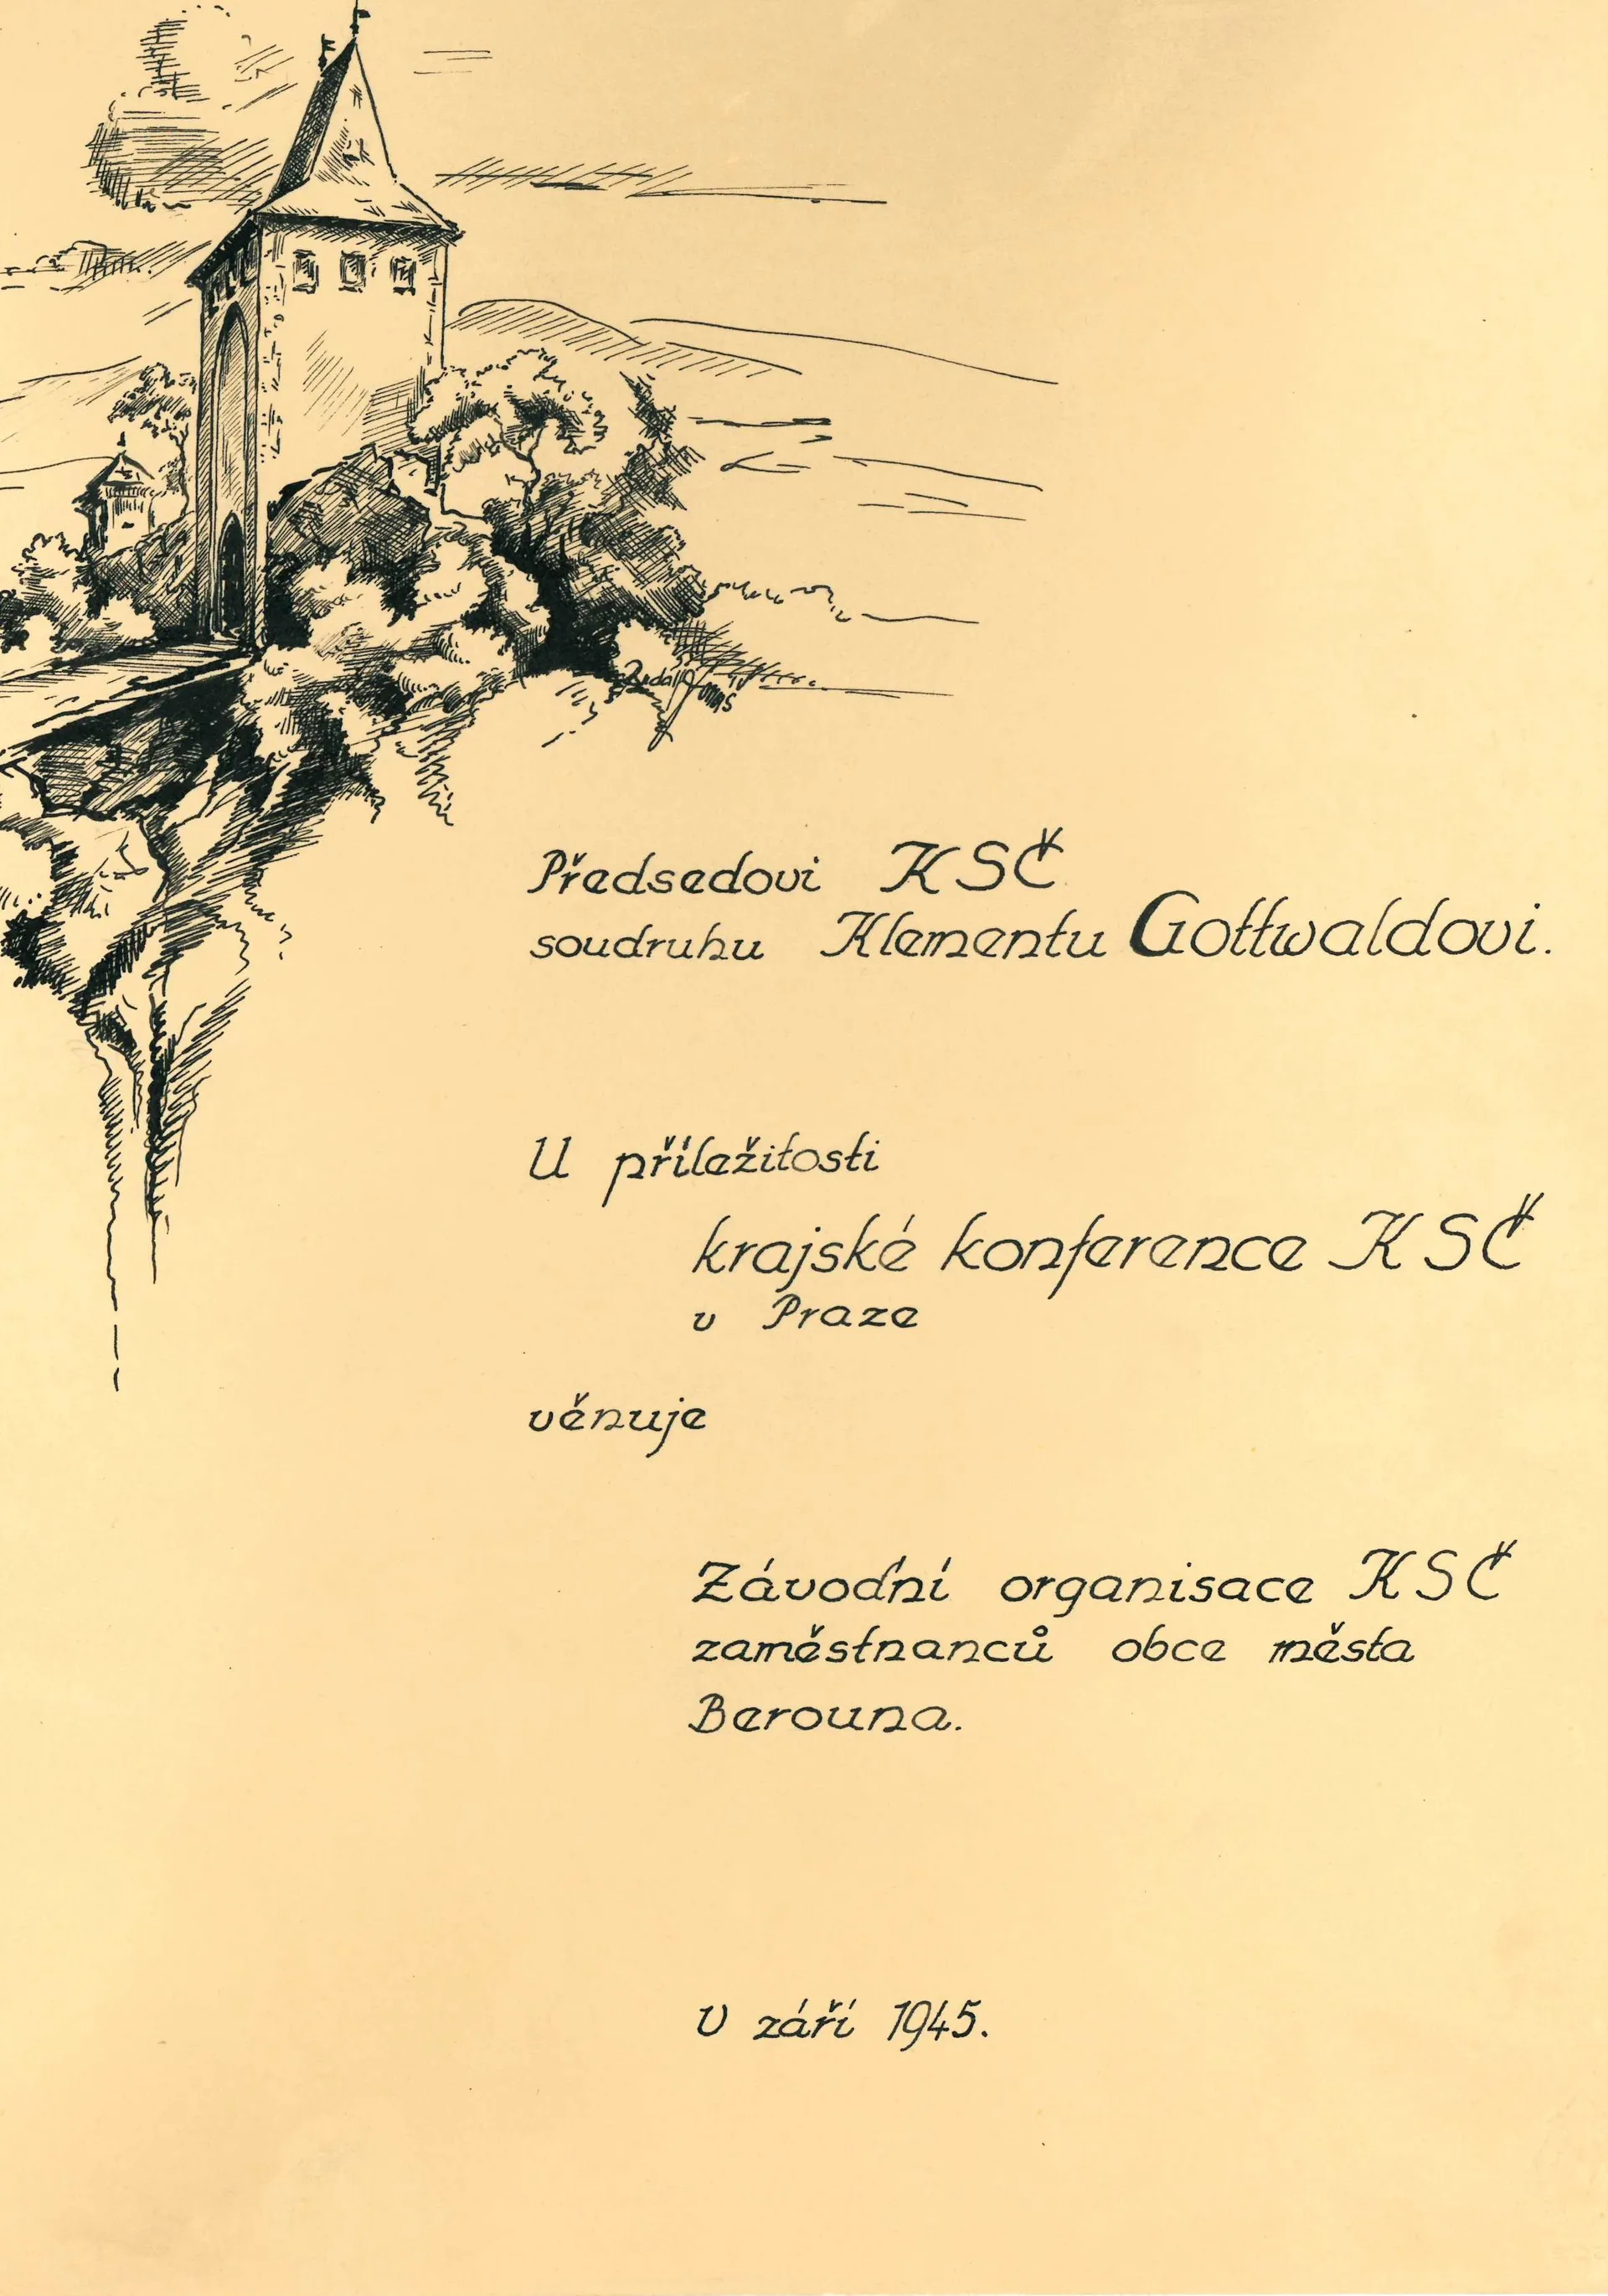 Předsedovi KSČ
soudruhu Klementu Gottwaldovi.
U příležitosti
krajské konference KSČ
v Praze
věnuje
Závodní organisace KSČ
zaměstnanců obce města
Berouna.
V září 1945.